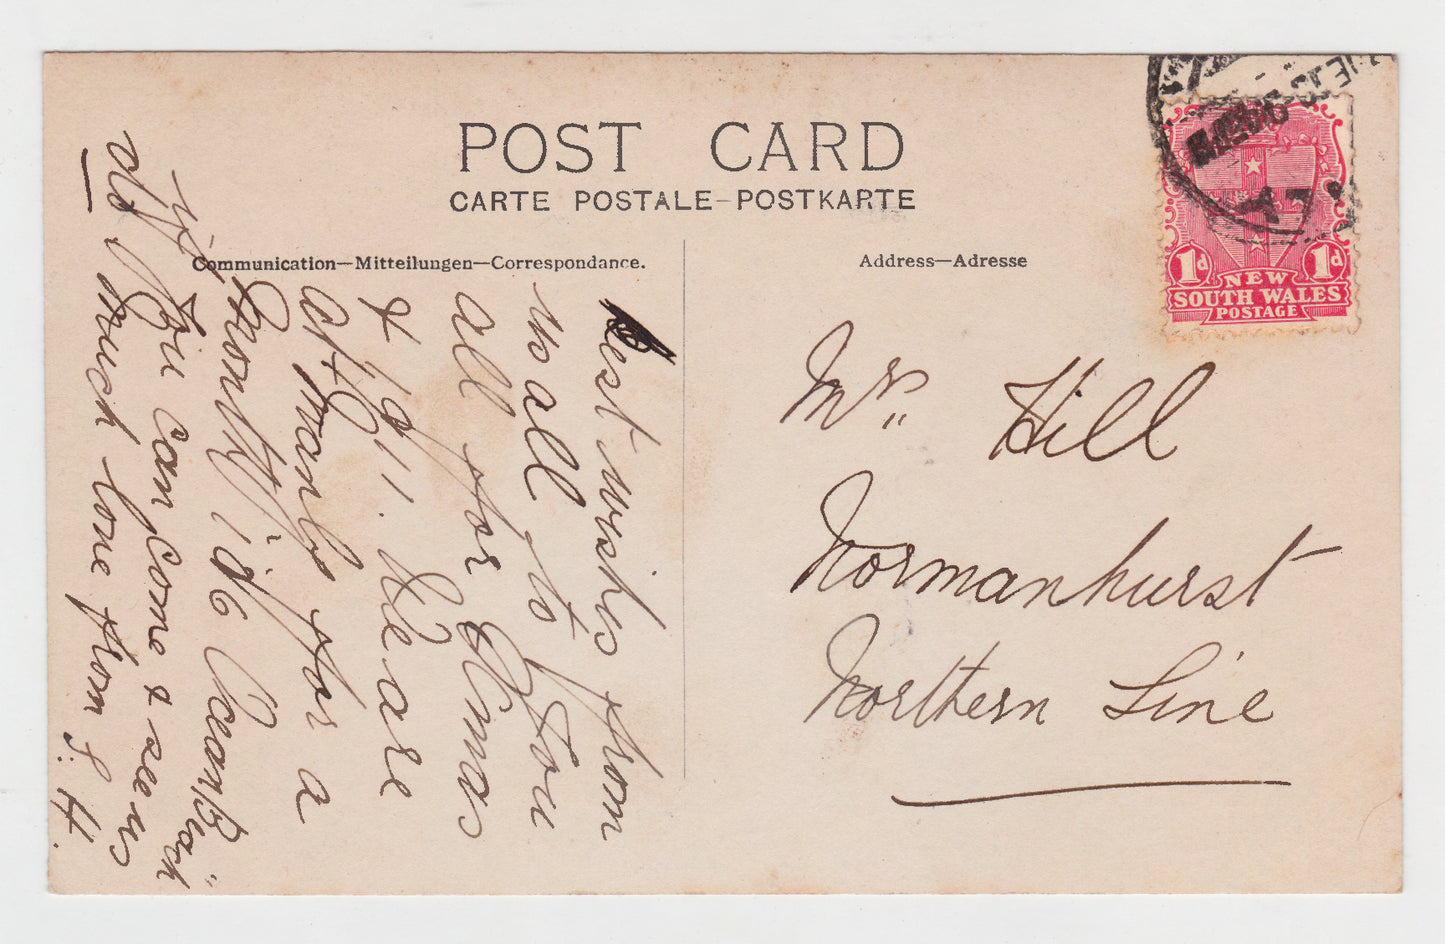 POST CARD
CARTE POSTALE-POSTKARTE
Communication—Mitteilungen—Correspondance.
Address—Adresse
1d 1d
NEW
SOUTH WALES
POSTAGE
Best wishes from
us all to you
all for Xmas
& 1911. We are
at Manly for a
fortnight "Ocean Beach"
if you can come & see us
much love from S. H.
Mrs Hill
Normanhurst
Northern Line